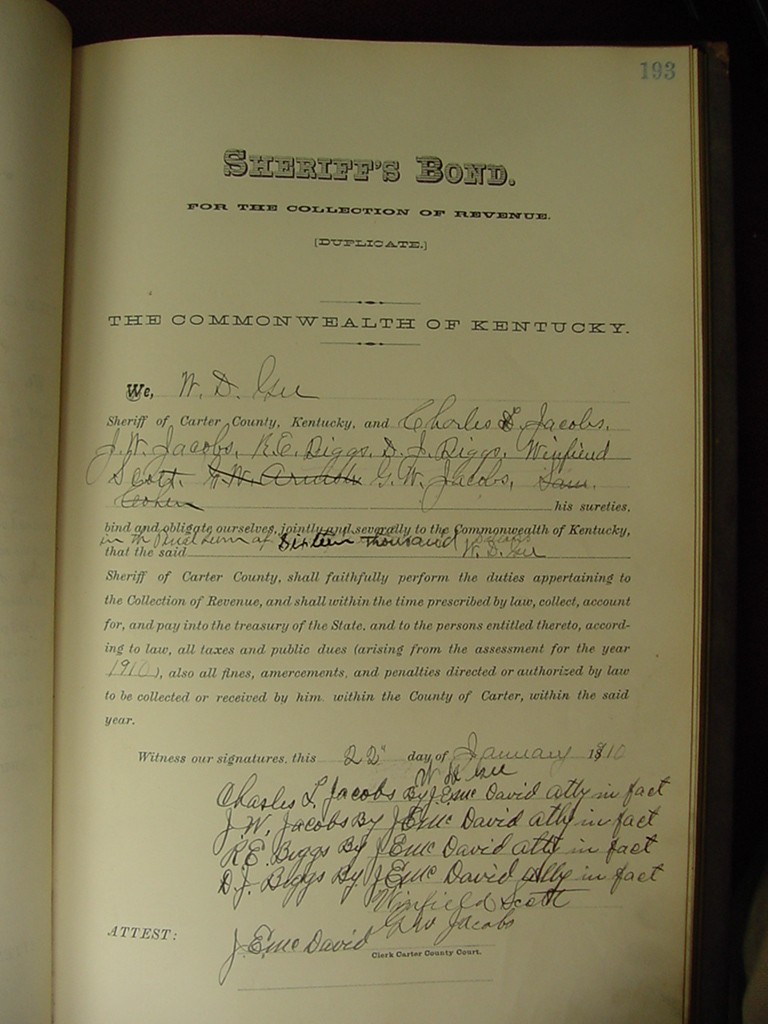 193
SHERIFF'S BOND.
FOR THE COLLECTION OF REVENUE.
[DUPLICATE.]
THE COMMONWEALTH OF KENTUCKY.
We, W. D. Gee
Sheriff of Carter County, Kentucky, and Charles L. Jacobs,
J. W. Jacobs, R. E. Biggs, D. J. Biggs, Winfield
Scott, G. W. Jacobs, Sam
his sureties,
bind and obligate ourselves, jointly and severally to the Commonwealth of Kentucky,
in the Penal sum of Sixteen Thousand Dollars
that the said W. D. Gee
Sheriff of Carter County, shall faithfully perform the duties appertaining to
the Collection of Revenue, and shall within the time prescribed by law, collect, account
for, and pay into the treasury of the State, and to the persons entitled thereto, accord-
ing to law, all taxes and public dues (arising from the assessment for the year
1910), also all fines, amercements, and penalties directed or authorized by law
to be collected or received by him, within the County of Carter, within the said
year.
Witness our signatures, this 22" day of January 1910
W D Gee
Charles L. Jacobs By J E McDavid atty in fact
J. W. Jacobs By J E McDavid atty in fact
R. E. Biggs By J E McDavid atty in fact
D. J. Biggs By J E McDavid atty in fact
Winfield Scott
G W Jacobs
ATTEST: J. E. McDavid
Clerk Carter County Court.